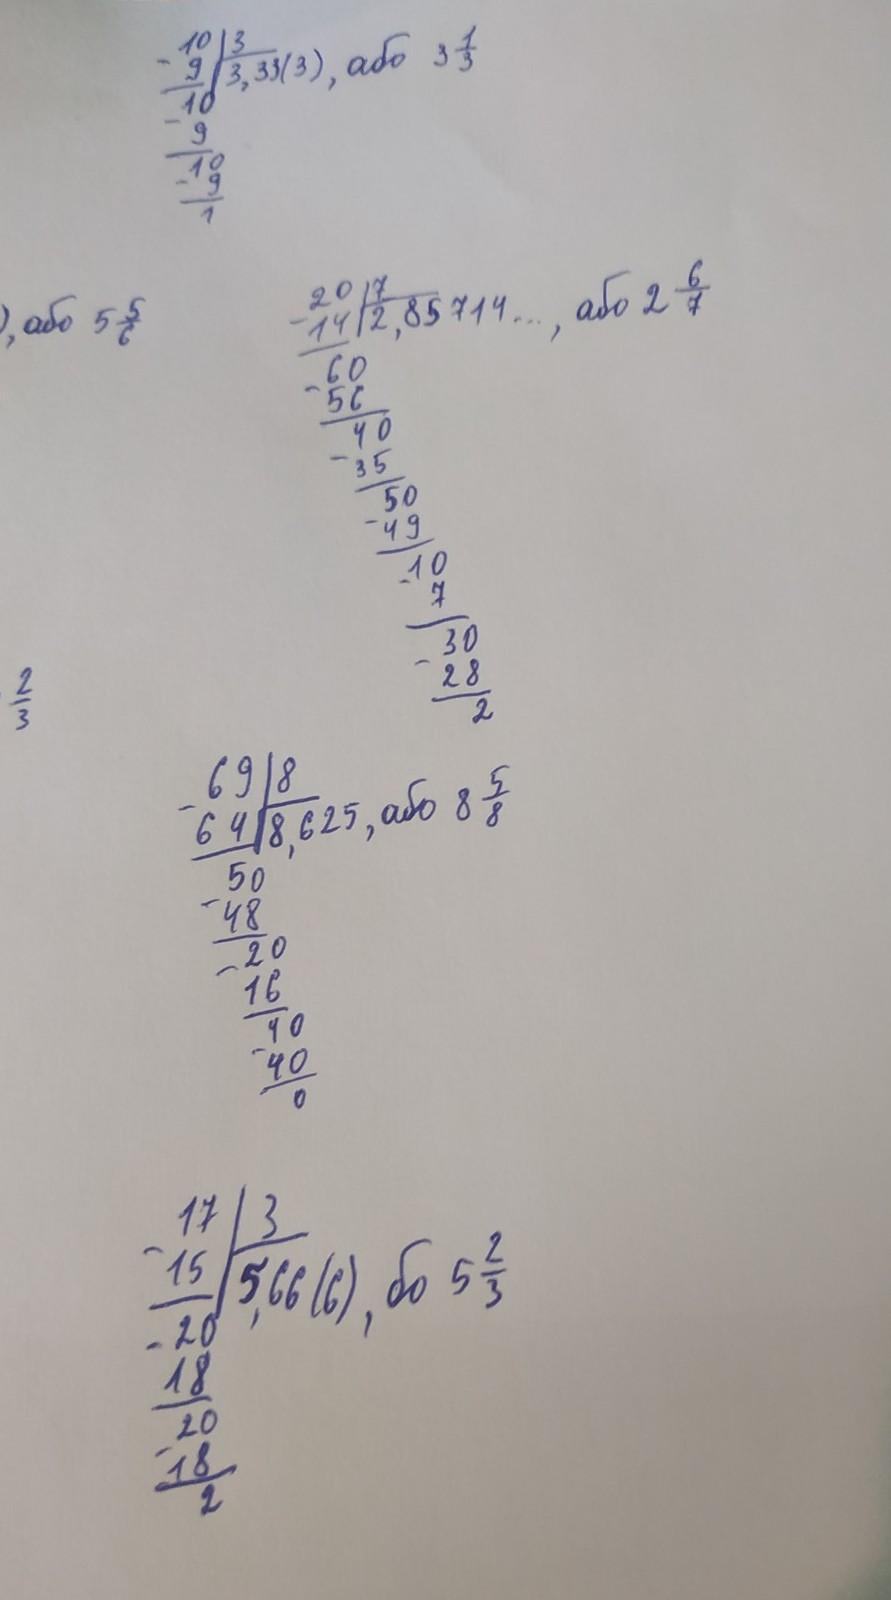 - 10 | 3
9 | 3,33(3), або 3 1/3
- 10
9
- 10
- 9
1
), або 5 5/6
- 20 | 7
14 | 2,85714..., або 2 6/7
- 60
56
40
- 35
50
- 49
- 10
7
30
- 28
2
2/3
- 69 | 8
64 | 8,625, або 8 5/8
- 50
48
- 20
16
40
- 40
0
- 17 | 3
15 | 5,66(6), бо 5 2/3
- 20
18
- 20
18
2